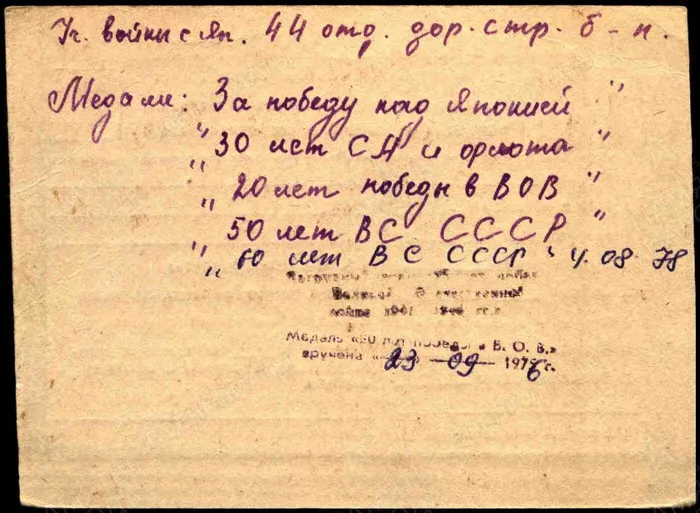 Уч. войны с Яп. 44 отд. дор. стр. б-н.
Медали: „За победу над Японией"
„30 лет СА и флота"
„20 лет победы в ВОВ"
„50 лет ВС СССР"
„60 лет ВС СССР" 4.08.78
Великой Отечественной
войне 1941 1945 гг.
Медаль «30 лет победы в В. О. В.»
вручена «23» 09 1976 г.